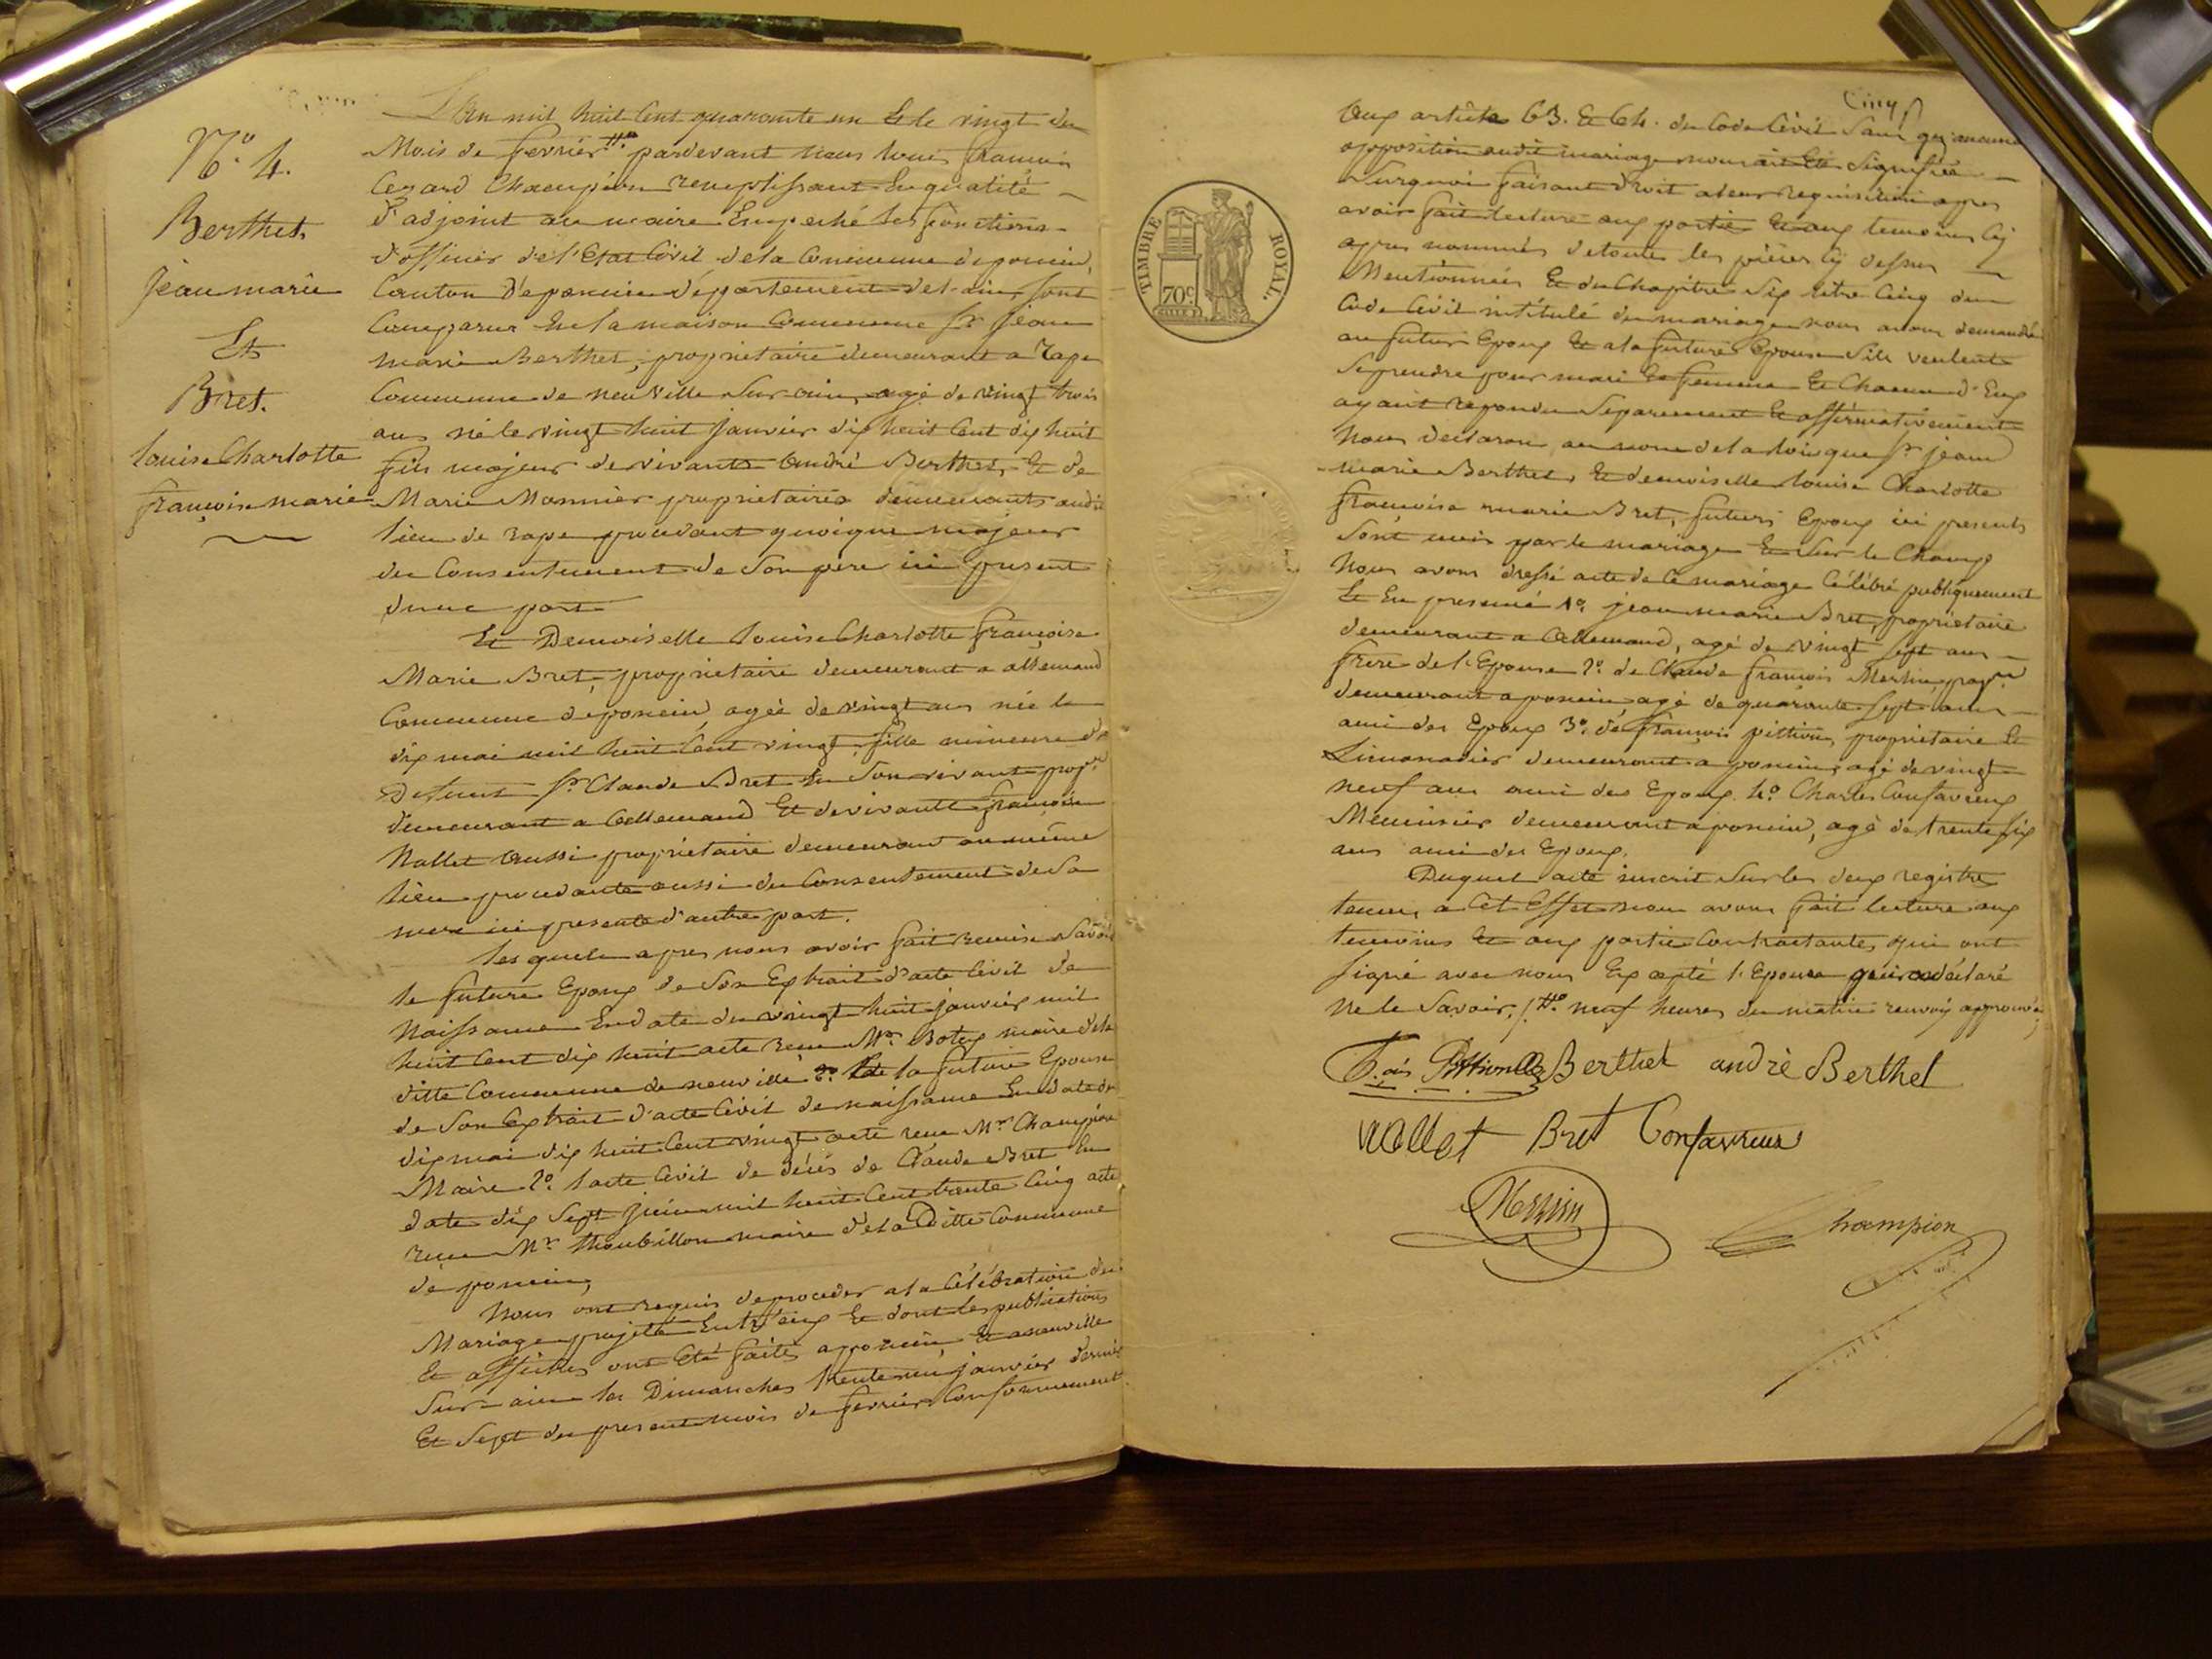 N.o 4.
Berthet
jean marie
Et
Bret.
louise Charlotte
françoise marie
L'An mil huit Cent quarante un Et le vingt du
Mois de fevrier #o pardevant nous louis francois
Cezard Champion remplissant En qualité
d'adjoint au maire Empeché les fonctions
d'officier de l'Etat Civil de la Commune de poncin,
Canton de poncin département de l'ain, sont
Comparus En la maison Commune Sr jean
marie Berthet, proprietaire demeurant a Rape
Commune de neuville Sur ain, agé de vingt trois
ans né le vingt huit janvier dix huit Cent dix huit
fils majeur de vivants André Berthet, Et de
Marie Monnier proprietaires demeurants audit
lieu de rape procedant quoique majeur
du Consentement de Son pere ici present
d'une part
Et Demoiselle louise Charlotte françoise
Marie Bret, proprietaire demeurant a allemand
Commune de poncin, agée de vingt ans née le
dix mai mil huit Cent vingt, fille mineure de
Defunt Sr Claude Bret En Son vivant propre
demeurant a allemand Et de vivante françoise
Nallet aussi proprietaire demeurant au même
lieu procedante aussi du Consentement de Sa
mere ici presente d'autre part.
les quels apres nous avoir fait remise Savoir
le future Epoux de Son Extrait d'acte Civil de
Naissance En date du vingt huit janvier mil
huit Cent dix huit acte recu Mr Botex maire de la
ditte Commune de neuville 2o la future Epouse
de Son Extrait d'acte Civil de naissance En date du
dix mai dix huit Cent vingt acte recu Mr Champion
Maire 2o l'acte Civil de décés de Claude Bret En
date dix Sept juin mil huit Cent trente Cinq acte
recu Mr thoubillon maire de la Ditte Commune
de poncin,
Nous ont requis de proceder a la Célébration du
Mariage projetté Entr'eux Et dont les publications
Et affiches ont Eté faites a poncin, Et a neuville
Sur ain les Dimanches trente un janvier dernier
Et Sept du present mois de fevrier Conformement
Cinq
TIMBRE ROYAL.
70c
Aux articles 63. Et 64. du Code Civil Sans qu'aucune
opposition audit mariage nous ait Eté Signifiée
Surquoi faisant Droit a leur requisition apres
avoir fait lecture aux parties Et aux temoins Cy
apres nommés de toutes les pièces Cy dessus
Mentionnées Et du Chapitre Six titre Cinq du
Code Civil intitulé du mariage nous avons demandé
au futur Epoux Et a la future Epouse S'ils veulent
Se prendre pour mari Et femme Et Chacun d'Eux
ayant repondu Separement Et affirmativement
Nous declarons au nom de la loi que Sr jean
marie Berthet, Et demoiselle louise Charlotte
françoise marie Bret, futurs Epoux ici presents
Sont unis par le mariage Et Sur le Champ
Nous avons dressé acte de Ce mariage Célébré publiquement
Et En presence 1o jean marie Bret, proprietaire
demeurant a allemand, agé de vingt Sept ans
frere de l'Epouse 2o de Claude françois Merlin, propre
demeurant a poncin agé de quarante Sept ans
ami des Epoux 3o de françois pittion, proprietaire Et
Limonadier demeurant a poncin, agé de vingt
neuf ans ami des Epoux 4o Charles Confavreux
Menuisier demeurant a poncin, agé de trente Six
ans ami des Epoux.
Duquel acte inscrit Sur les deux registres
tenus a Cet Effet nous avons fait lecture aux
temoins Et aux parties Contractantes, qui ont
Signé avec nous Excepté l'Epouse qui a déclaré
Ne le Savoir, #o neuf heures du matin renvoi approuvé
Berthet andrè Berthet
nallet Bret Confavreux
Champion